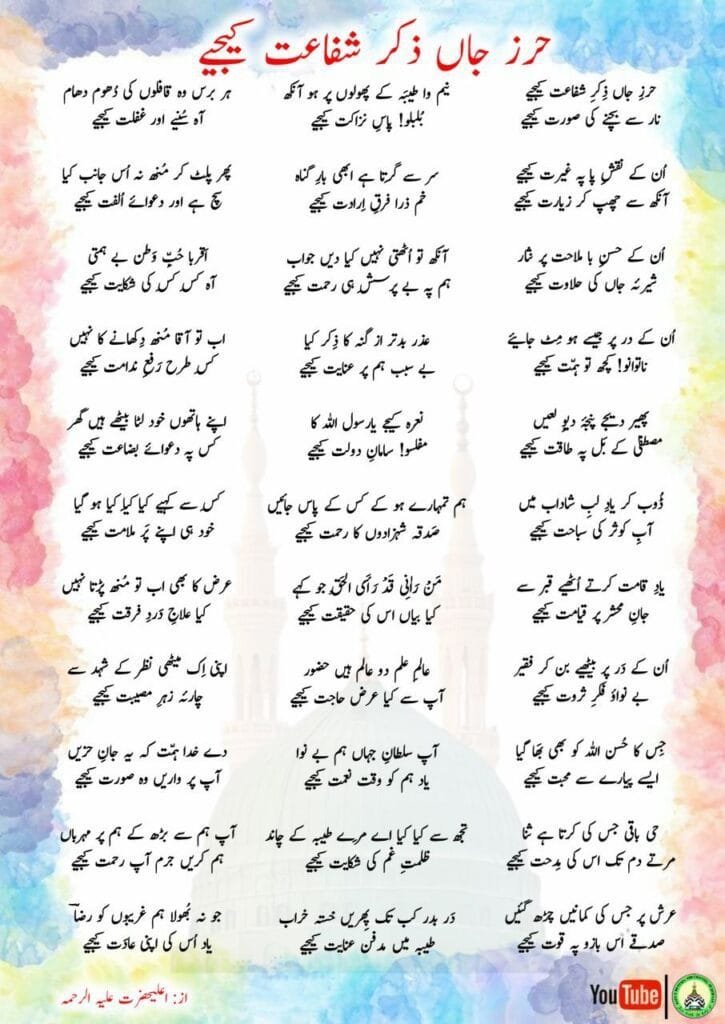 حرز جاں ذکر شفاعت کیجیے
حرزِ جاں ذِکرِ شفاعت کیجیے
نار سے بچنے کی صورت کیجیے
اُن کے نقشِ پا پہ غیرت کیجیے
آنکھ سے چھپ کر زیارت کیجیے
اُن کے حسنِ با ملاحت پر نثار
شیرۂ جاں کی حلاوت کیجیے
اُن کے در پر جیسے ہو مِٹ جائیے
ناتوانو! کچھ تو ہمّت کیجیے
پھیر دیجے پنجۂ دیوِ لعیں
مصطفٰی کے بَل پہ طاقت کیجیے
ڈُوب کر یادِ لبِ شاداب میں
آبِ کوثر کی سباحت کیجیے
یادِ قامت کرتے اُٹھیے قبر سے
جانِ محشر پر قیامت کیجیے
اُن کے دَر پر بیٹھیے بن کر فقیر
بے نواؤ فکرِ ثروت کیجیے
جِس کا حُسن اللہ کو بھی بھا گیا
ایسے پیارے سے محبت کیجیے
حی باقی جس کی کرتا ہے ثنا
مرتے دم تک اس کی مِدحت کیجیے
عرش پر جس کی کمانیں چڑھ گئیں
صدقے اس بازو پہ قوت کیجیے
نیم وا طیبہ کے پھولوں پر ہو آنکھ
بُلبلو! پاسِ نزاکت کیجیے
سر سے گرتا ہے ابھی بارِ گناہ
خم ذرا فرقِ اِرادت کیجیے
آنکھ تو اُٹھتی نہیں کیا دیں جواب
ہم پہ بے پرسش ہی رحمت کیجیے
عذر بدتر از گنہ کا ذِکر کیا
بے سبب ہم پر عنایت کیجیے
نعرہ کیجے یارسول اللہ کا
مفلسو! سامانِ دولت کیجیے
ہم تمہارے ہو کے کس کے پاس جائیں
صَدقہ شہزادوں کا رحمت کیجیے
مَنْ رَاٰنِی قَدْ رَأَی الحَقَّ جو کہے
کیا بیاں اس کی حقیقت کیجیے
عالمِ علم دو عالم ہیں حضور
آپ سے کیا عرض حاجت کیجیے
آپ سلطانِ جہاں ہم بے نوا
یاد ہم کو وقت نعمت کیجیے
تجھ سے کیا کیا اے مِرے طیبہ کے چاند
ظلمتِ غم کی شکایت کیجیے
دَر بدر کب تک پھریں خستہ خراب
طیبہ میں مدفن عنایت کیجیے
ہر برس وہ قافلوں کی دُھوم دھام
آہ سُنیے اور غفلت کیجیے
پھر پلٹ کر مُنھ نہ اُس جانب کیا
سچ ہے اور دعوائے اُلفت کیجیے
اَقربا حُبِّ وَطن بے ہمتی
آہ کس کس کی شکایت کیجیے
اب تو آقا مُنھ دِکھانے کا نہیں
کس طرح رَفعِ ندامت کیجیے
اپنے ہاتھوں خود لٹا بیٹھے ہیں گھر
کس پہ دعوائے بضاعت کیجیے
کس سے کہیے کیا کِیا کیا ہو گیا
خود ہی اپنے پَر ملامت کیجیے
عرض کا بھی اب تو مُنھ پڑتا نہیں
کیا علاجِ دَردِ فرقت کیجیے
اپنی اِک میٹھی نظر کے شہد سے
چارۂ زہرِ مصیبت کیجیے
دے خدا ہمّت کہ یہ جانِ حزیں
آپ پر واریں وہ صورت کیجیے
آپ ہم سے بڑھ کے ہم پر مہرباں
ہم کریں جرم آپ رحمت کیجیے
جو نہ بُھولا ہم غریبوں کو رضا
یاد اُس کی اپنی عادَت کیجیے
از: اعلیحضرت علیہ الرحمہ
YouTube